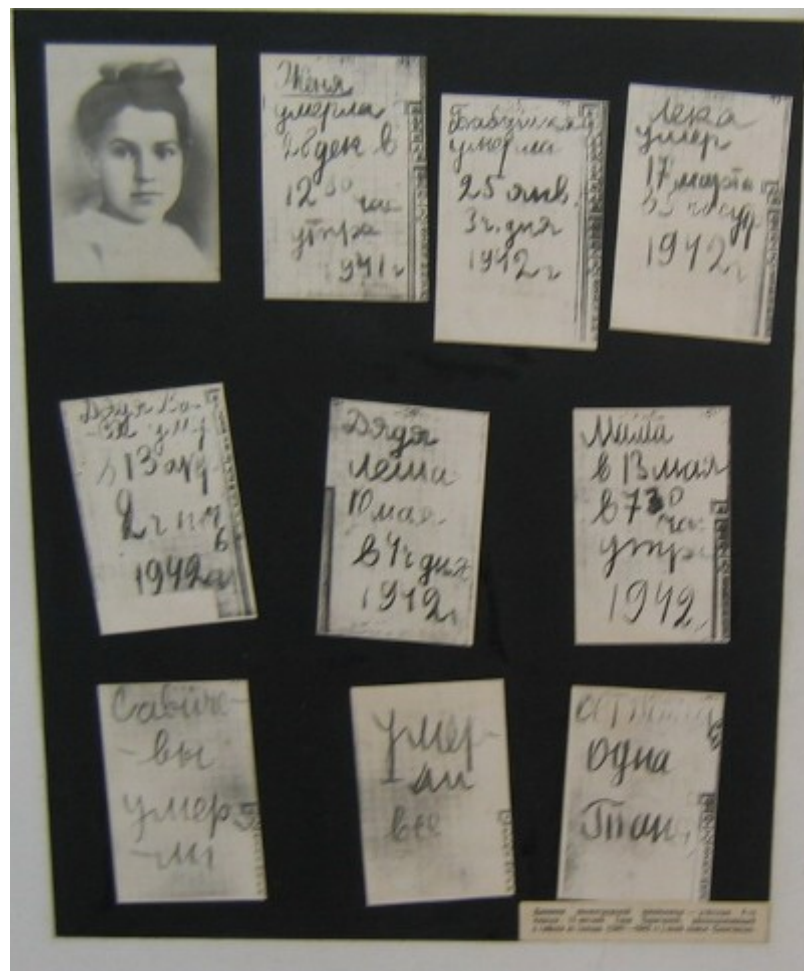 Женя
умерла
28 дек в
12 30 час
утра
1941 г
Бабушка
умерла
25 янв.
3 ч. дня
1942 г
Лека
умер
17 марта
в 5 час утр
1942 г
Дядя Ва-
-ся умер
в 13 апр
2 ч ноч
1942 г
Дядя
Леша
10 мая
в 4 ч дня
1942 г
Мама
в 13 мая
в 7 30 час
утра
1942
Савиче-
-вы
умер
-ли
умер-
-ли
все
одна
Тан